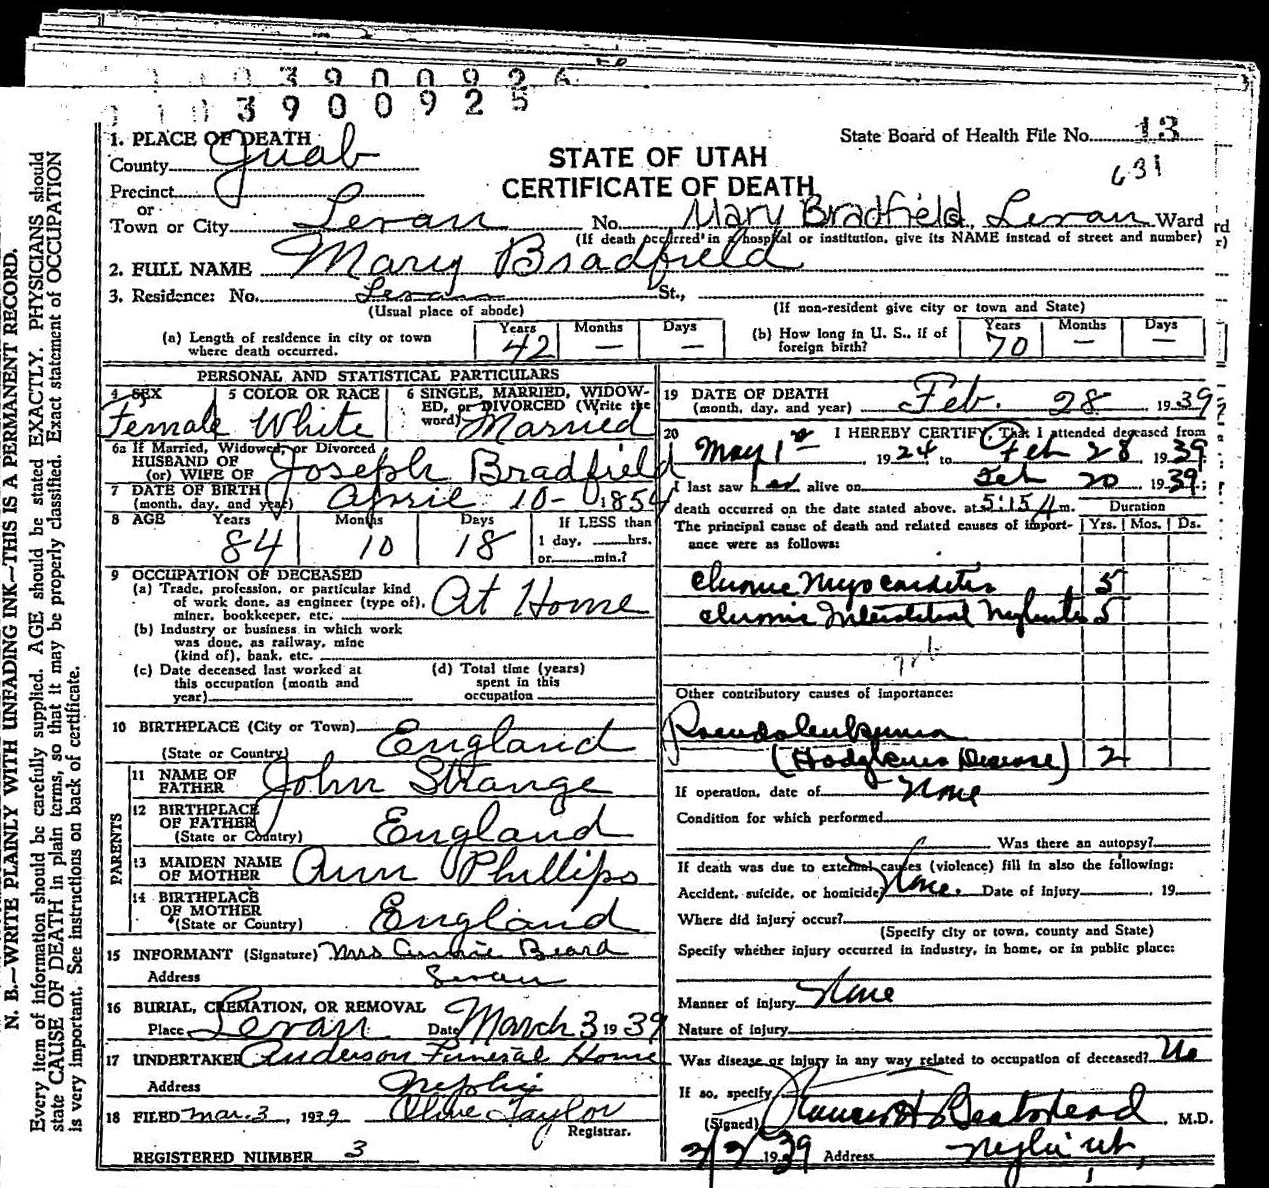 1 1 0 3 9 0 0 9 2 6
0 1 0 3 9 0 0 9 2 5
1. PLACE OF DEATH
County Juab
State Board of Health File No. 13
631
STATE OF UTAH
CERTIFICATE OF DEATH
Precinct
or
Town or City Levan No. Mary Bradfield, Levan Ward
rd
(If death occurred in a hospital or institution, give its NAME instead of street and number)
r)
2. FULL NAME Mary Bradfield
3. Residence: No. Levan St.,
(Usual place of abode) (If non-resident give city or town and State)
(a) Length of residence in city or town where death occurred. Years 42 Months — Days —
(b) How long in U. S., if of foreign birth? Years 70 Months — Days —
PERSONAL AND STATISTICAL PARTICULARS
4 SEX Female
5 COLOR OR RACE White
6 SINGLE, MARRIED, WIDOWED, or DIVORCED (Write the word) Married
6a If Married, Widowed, or Divorced
HUSBAND OF
(or) WIFE OF Joseph Bradfield
7 DATE OF BIRTH
(month, day, and year) April 10- 1854
8 AGE Years 84 Months 10 Days 18
If LESS than
1 day, hrs.
or min.?
9 OCCUPATION OF DECEASED
(a) Trade, profession, or particular kind
of work done, as engineer (type of),
miner, bookkeeper, etc. At Home
(b) Industry or business in which work
was done, as railway, mine
(kind of), bank, etc.
(c) Date deceased last worked at
this occupation (month and
year)
(d) Total time (years)
spent in this
occupation
10 BIRTHPLACE (City or Town)
(State or Country) England
PARENTS
11 NAME OF
FATHER John Strange
12 BIRTHPLACE
OF FATHER
(State or Country) England
13 MAIDEN NAME
OF MOTHER Ann Phillips
14 BIRTHPLACE
OF MOTHER
(State or Country) England
15 INFORMANT (Signature) Mrs Annie Beard
Address Levan
16 BURIAL, CREMATION, OR REMOVAL
Place Levan Date March 3 1939
17 UNDERTAKER Anderson Funeral Home
Address Nephi
18 FILED Mar. 3, 1939 Olive Taylor
Registrar.
REGISTERED NUMBER 3
19 DATE OF DEATH
(month, day, and year) Feb. 28 1939
20 I HEREBY CERTIFY, That I attended deceased from
May 1st 1924 to Feb 28 1939
I last saw h alive on Feb 20 1939;
death occurred on the date stated above, at 5:15 A m.
The principal cause of death and related causes of importance were as follows:
Duration
Yrs. Mos. Ds.
Chronic Myocarditis 5
Chronic Interstitial Nephritis 5
Other contributory causes of importance:
Pseudoleukemia
(Hodgkins Disease) 2
If operation, date of None
Condition for which performed
Was there an autopsy?
If death was due to external causes (violence) fill in also the following:
Accident, suicide, or homicide? None. Date of injury , 19
Where did injury occur?
(Specify city or town, county and State)
Specify whether injury occurred in industry, in home, or in public place:
Manner of injury None
Nature of injury
Was disease or injury in any way related to occupation of deceased? No
If so, specify
(Signed) , M.D.
1939 Address Nephi Ut,
N. B.—WRITE PLAINLY WITH UNFADING INK—THIS IS A PERMANENT RECORD.
Every item of information should be carefully supplied. AGE should be stated EXACTLY. PHYSICIANS should
state CAUSE OF DEATH in plain terms, so that it may be properly classified. Exact statement of OCCUPATION
is very important. See instructions on back of certificate.